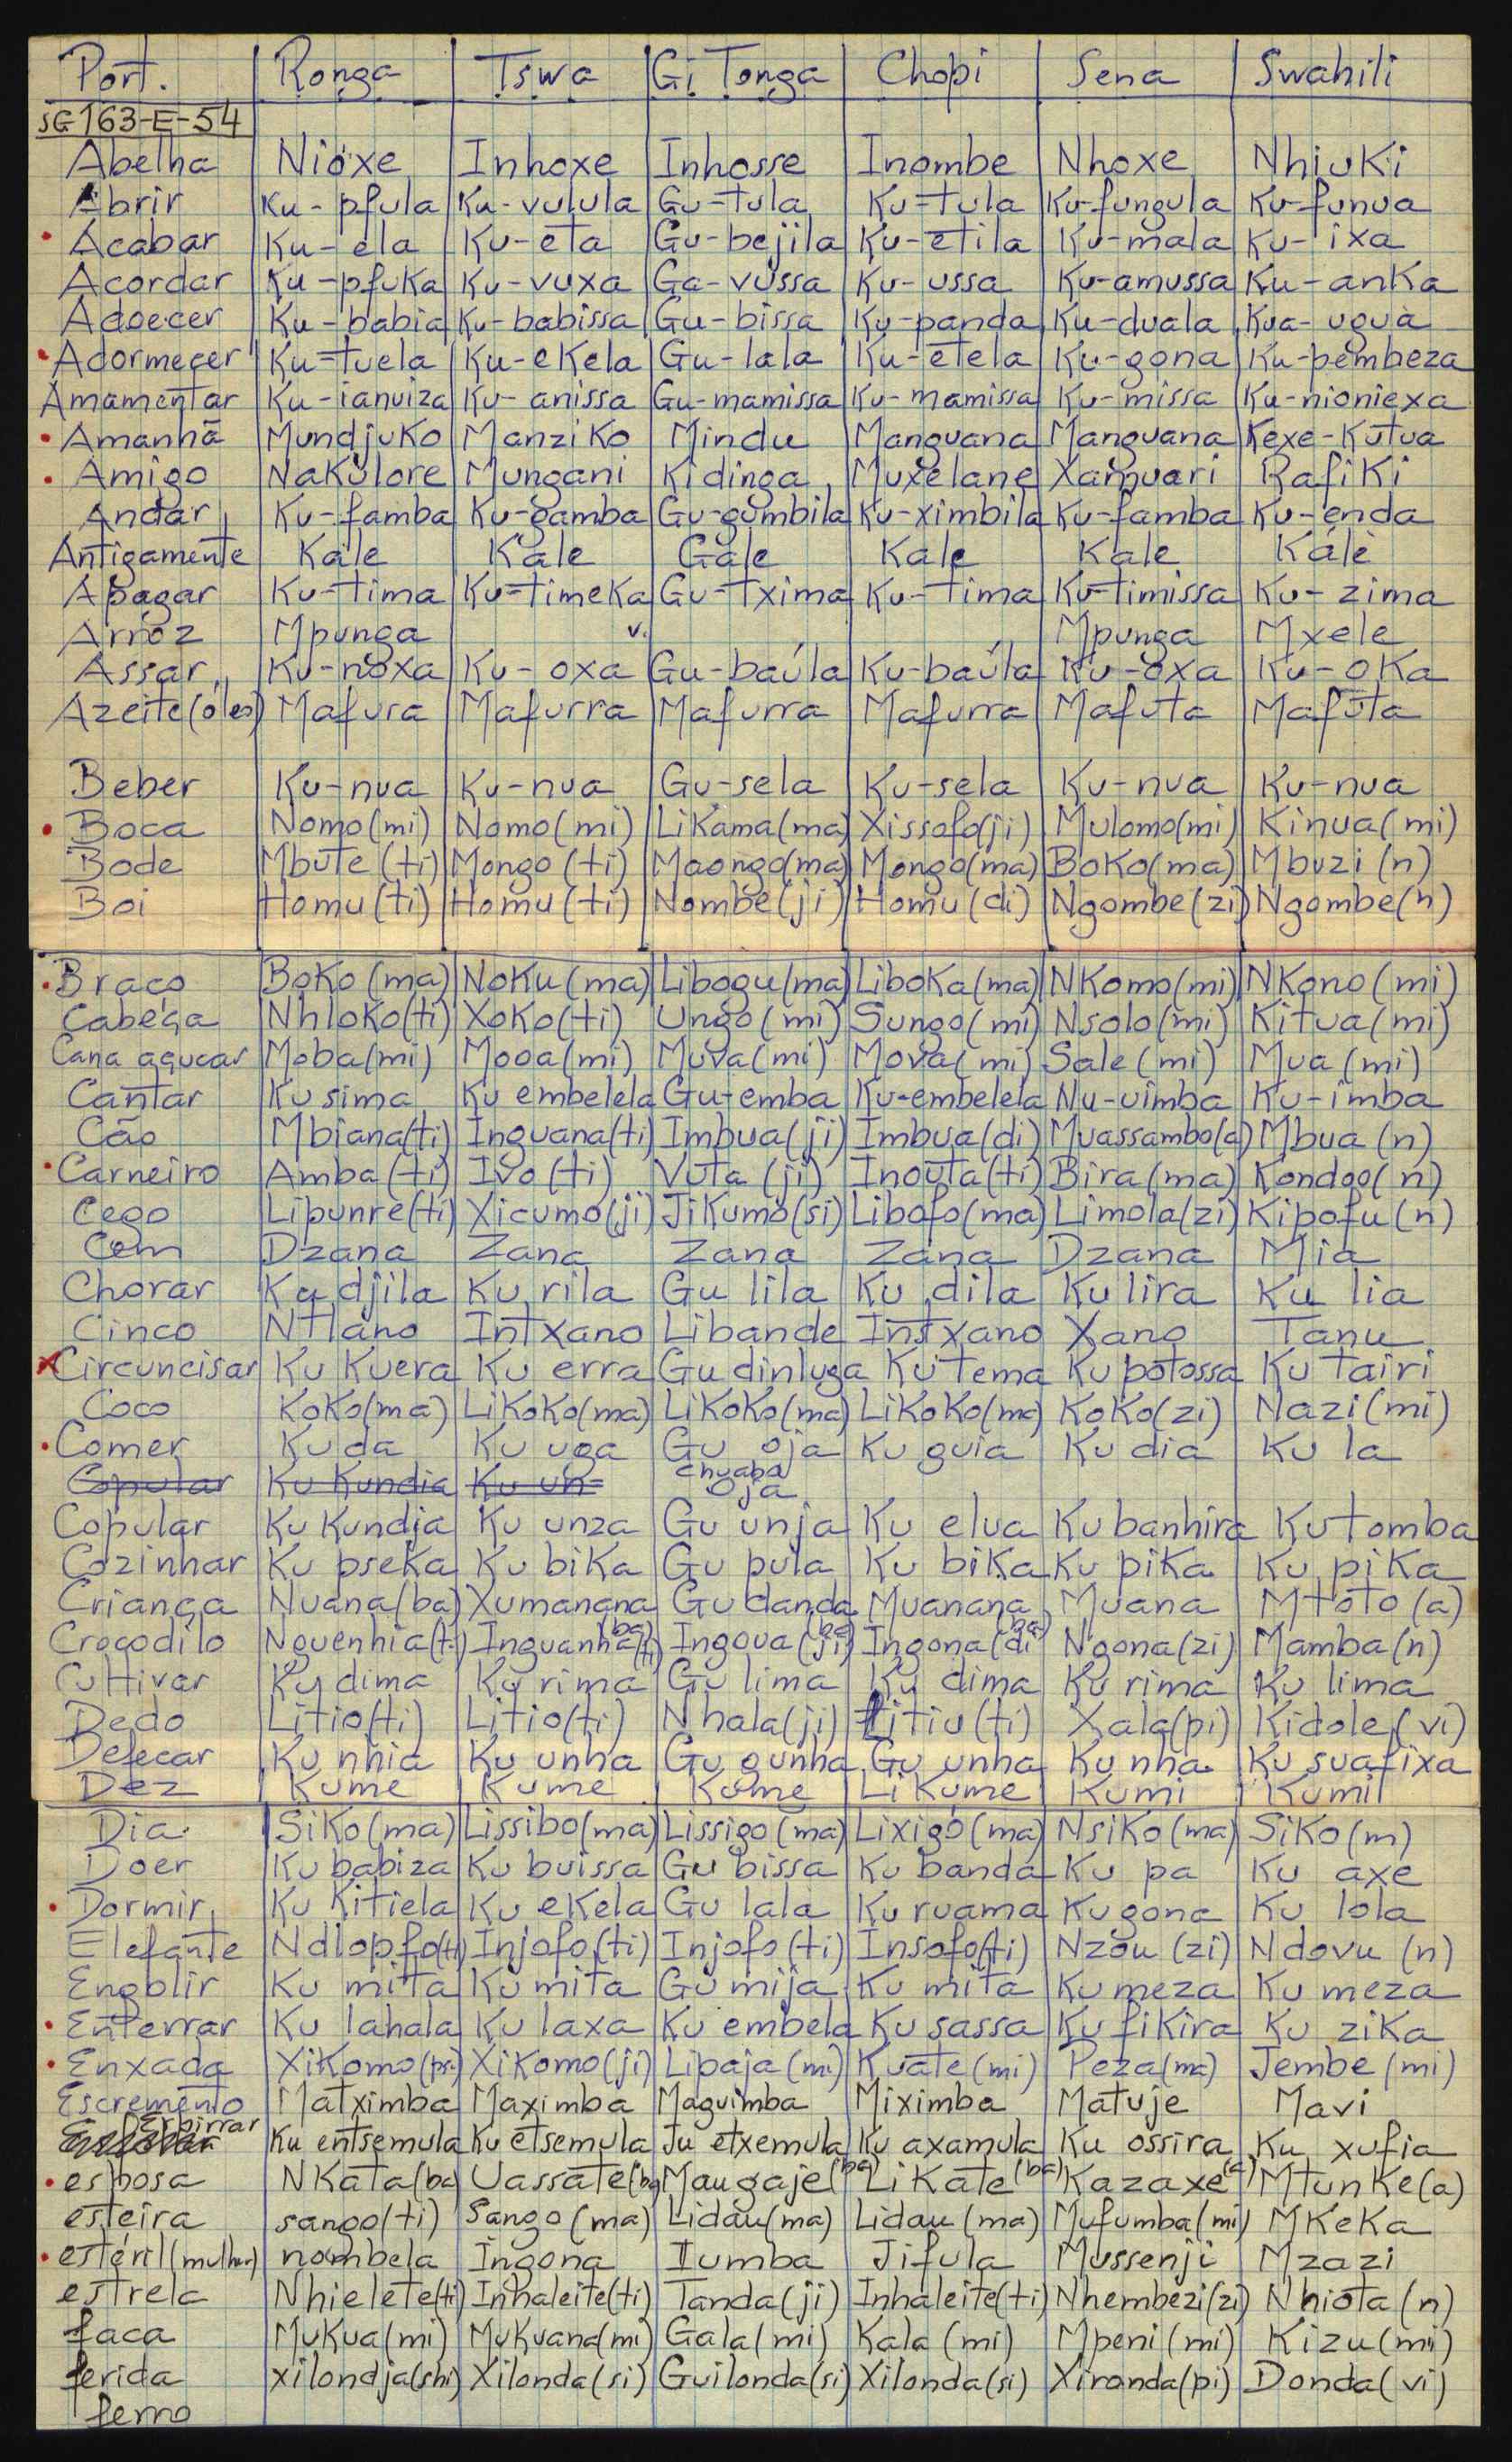 Port. Ronga Tswa Gi Tonga Chopi Sena Swahili
SG163-E-54
Abelha Nióxe Inhoxe Inhosse Inombe Nhoxe Nhiuki
Abrir Ku-pfula Ku-vulula Gu-tula Ku-tula Ku-fungula Ku-funua
Acabar Ku-ela Ku-eta Gu-bejila Ku-etila Ku-mala Ku-ixa
Acordar Ku-pfuka Ku-vuxa Ga-vussa Ku-ussa Ku-amussa Ku-anka
Adoecer Ku-babia Ku-babissa Gu-bissa Ku-panda Ku-duala Kua-ugua
Adormecer Ku-tuela Ku-ekela Gu-lala Ku-etela Ku-gona Ku-pembeza
Amamentar Ku-ianuiza Ku-anissa Gu-mamissa Ku-mamissa Ku-missa Ku-nioniexa
Amanhã Mundjuko Manziko Mindu Manguana Manguana Kexe-Kutua
Amigo Nakulore Mungani Kidinga Muxelane Xamuari Rafiki
Andar Ku-famba Ku-gamba Gu-gumbila Ku-ximbila Ku-famba Ku-enda
Antigamente Kale Kale Gale Kale Kale Kále
Apagar Ku-tima Ku-timeka Gu-txima Ku-tima Ku-timissa Ku-zima
Arroz Mpunga v. Mpunga Mxele
Assar Ku-noxa Ku-oxa Gu-baúla Ku-baúla Ku-oxa Ku-oka
Azeite(óleo) Mafura Mafurra Mafurra Mafurra Mafuta Mafuta
Beber Ku-nua Ku-nua Gu-sela Ku-sela Ku-nua Ku-nua
Boca Nomo(mi) Nomo(mi) Likama(ma) Xissofo(ji) Mulomo(mi) Kinua(mi)
Bode Mbute(ti) Mongo(ti) Maongo(ma) Mongo(ma) Boko(ma) Mbuzi(n)
Boi Homu(ti) Homu(ti) Nombe(ji) Homu(di) Ngombe(zi) Ngombe(n)
Braço Boko(ma) Noku(ma) Libogu(ma) Liboka(ma) Nkomo(mi) Nkono(mi)
Cabeça Nhloko(ti) Xoko(ti) Ungo(mi) Sungo(mi) Nsolo(mi) Kitua(mi)
Cana açucar Moba(mi) Mooa(mi) Muva(mi) Mova(mi) Sale(mi) Mua(mi)
Cantar Ku sima Ku embelela Gu-emba Ku-embelela Nu-uimba Ku-imba
Cão Mbiana(ti) Inguana(ti) Imbua(ji) Imbua(di) Muassambo(a) Mbua(n)
Carneiro Amba(ti) Ivo(ti) Vuta(ji) Inouta(ti) Bira(ma) Kondoo(n)
Cego Lipunre(ti) Xicumo(ji) Jikumo(si) Libofo(ma) Limola(zi) Kipofu(n)
Cem Dzana Zana Zana Zana Dzana Mia
Chorar Ku djila Ku rila Gu lila Ku dila Ku lira Ku lia
Cinco Ntlano Intxano Libande Intxano Xano Tanu
Circuncisar Ku Kuera Ku erra Gu dinluga Ku tema Ku potossa Ku tairi
Coco Koko(ma) Likoko(ma) Likoko(ma) Likoko(ma) Koko(zi) Nazi(mi)
Comer Ku da Ku uga Gu oja Ku guia Ku dia Ku la
Copular Ku Kundia Ku un oja
Copular Ku Kundja Ku unza Gu unja Ku elua Ku banhira Ku tomba
Cozinhar Ku pseka Ku bika Gu pula Ku bika Ku pika Ku pika
Criança Nuana(ba) Xumanana (ba) Gu danda (ba) Muanana (ba) Muana Mtoto(a)
Crocodilo Nguenhia(ti) Inguanha(ti) Ingoua(ji) Ingona(di) Ngona(zi) Mamba(n)
Cultivar Ku dima Ku rima Gu lima Ku dima Ku rima Ku lima
Dedo Litio(ti) Litio(ti) Nhala(ji) Litiu(ti) Xala(pi) Kidole(vi)
Defecar Ku nhia Ku unha Gu gunha Gu unha Ku nha Ku sua fixa
Dez Kume Kume Kume Likume Kumi Kumi
Dia Siko(ma) Lissibo(ma) Lissigo(ma) Lixigo(ma) Nsiko(ma) Siko(m)
Doer Ku babiza Ku buissa Gu bissa Ku banda Ku pa Ku axe
Dormir Ku Kitiela Ku ekela Gu lala Ku ruama Ku gona Ku lola
Elefante Ndlopfo(ti) Injofo(ti) Injofo(ti) Insofo(ti) Nzou(zi) Ndovu(n)
Engolir Ku mita Ku mita Gu mija Ku mita Ku meza Ku meza
Enterrar Ku lahala Ku laxa Ku embela Ku sassa Ku fikira Ku zika
Enxada Xikomo(psi) Xikomo(ji) Lipaja(mi) Kuate(mi) Peza(ma) Jembe(mi)
Escremento Matximba Maximba Maguimba Miximba Matuje Mavi
Erbirrar Ku entsemula Ku etsemula Ju etxemula Ku axamula Ku ossira Ku xufia
esposa Nkata(ba) Uassate(ba) Maugaje(ba) Likate(ba) Kazaxe(a) Mtunke(a)
esteira sango(ti) Sango(ma) Lidau(ma) Lidau(ma) Mufumba(mi) Mkeka
estéril(mulher) nombela Ingona Iumba Jifula Mussenji Mzazi
estrela Nhielete(ti) Inhaleite(ti) Tanda(ji) Inhaleite(ti) Nhembezi(zi) Nhiota(n)
faca Mukua(mi) Mukuana(mi) Gala(mi) Kala(mi) Mpeni(mi) Kizu(mi)
ferida xilondja(shi) Xilonda(si) Guilonda(si) Xilonda(si) Xironda(pi) Donda(vi)
ferro